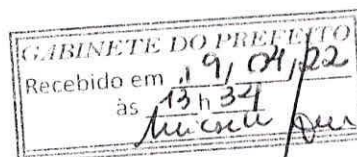 GABINETE DO PREFEITO
Recebido em 19/04/22
às 13 h 34